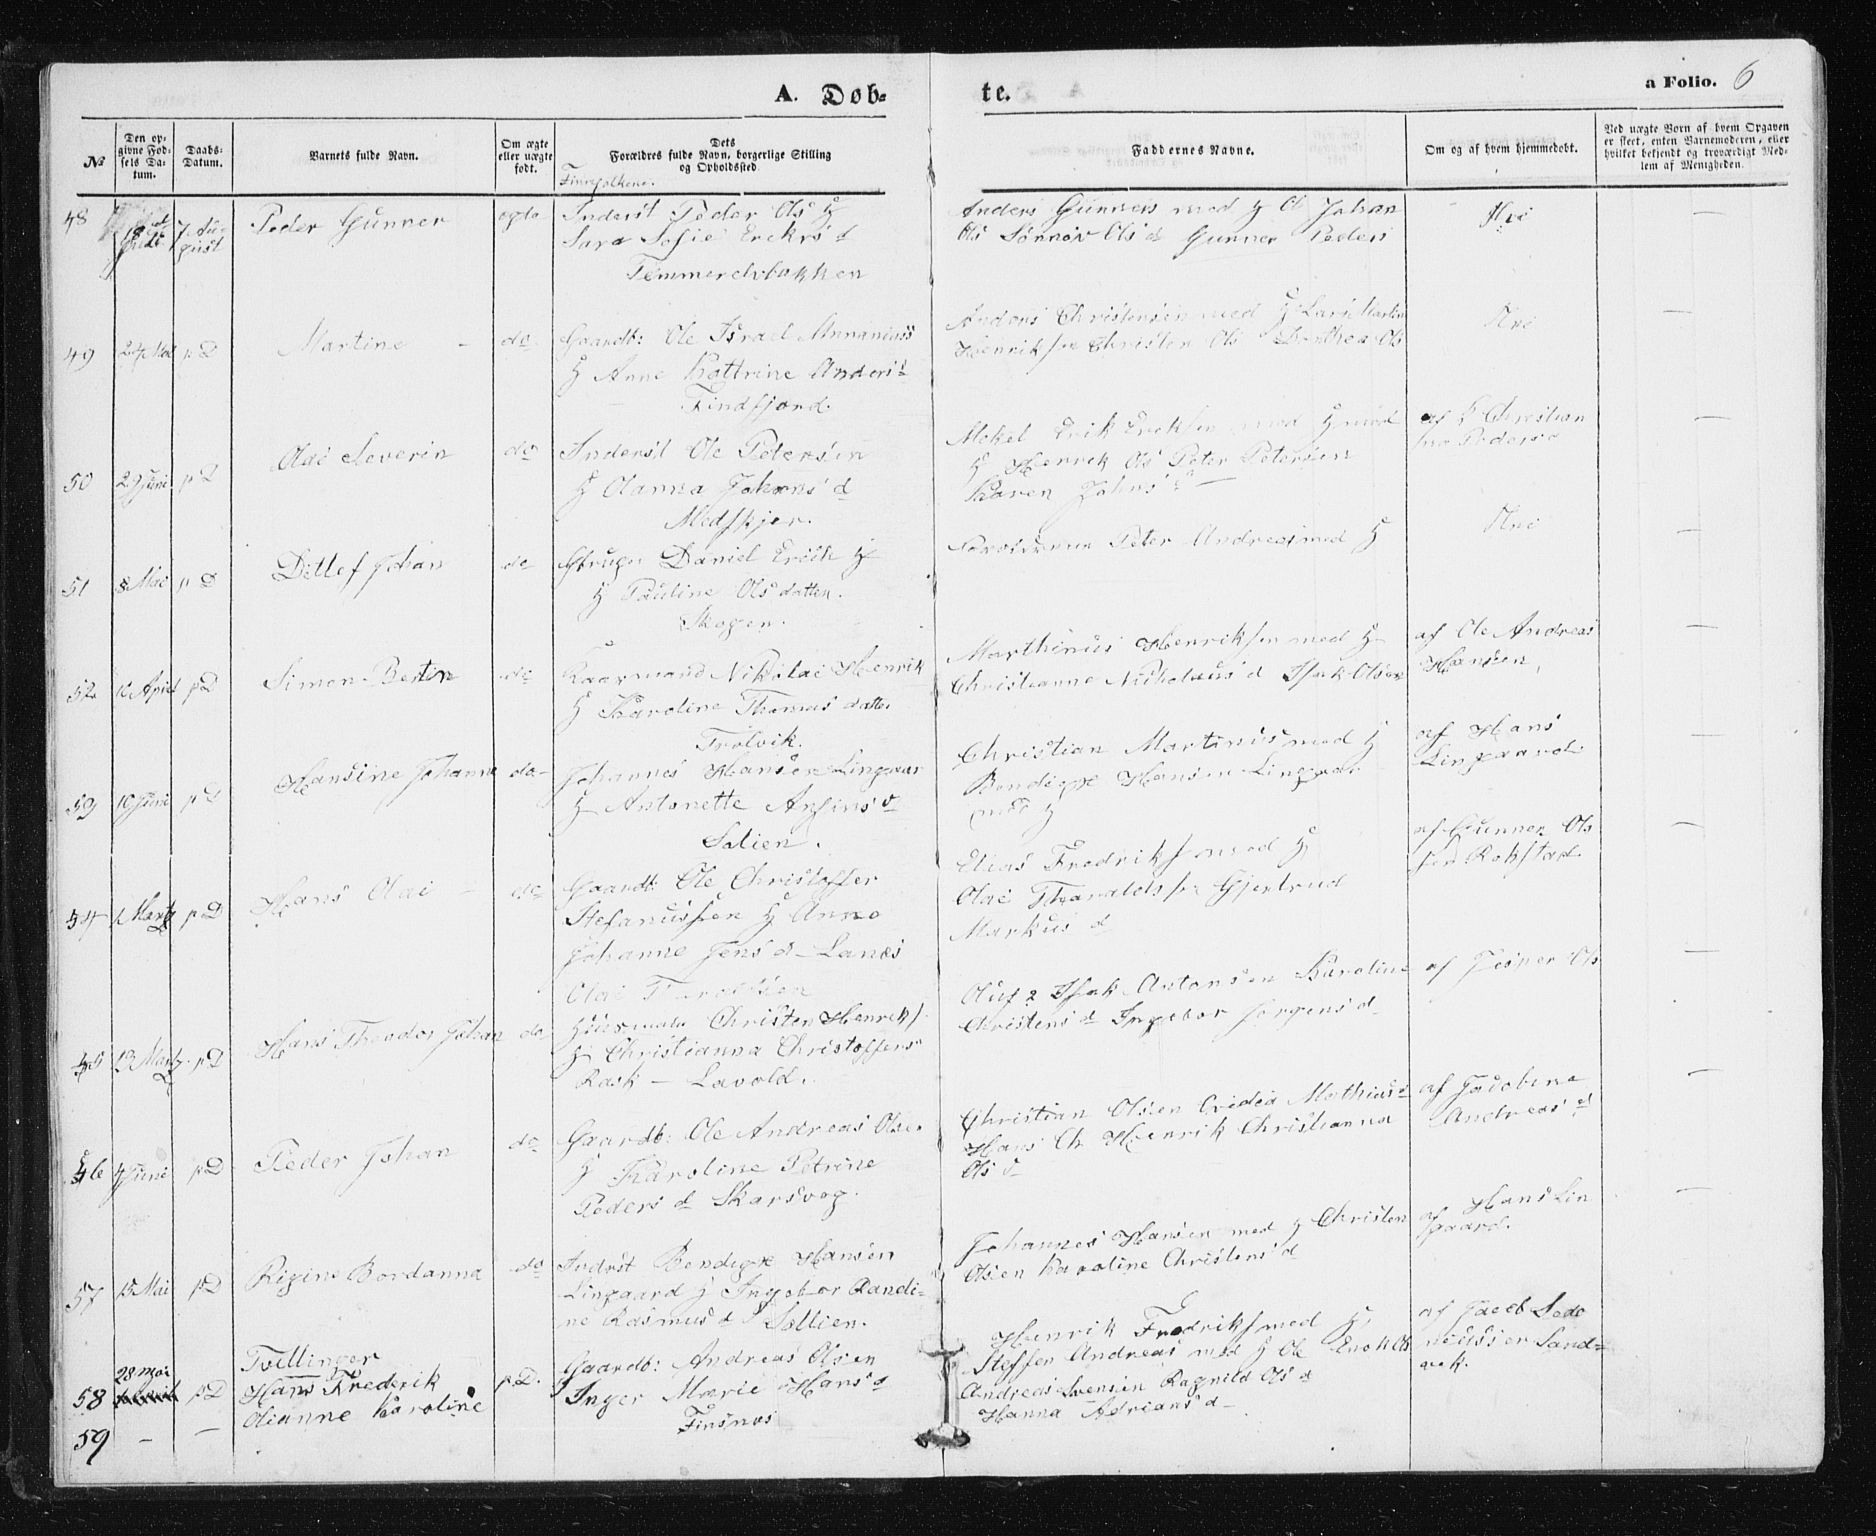 A. Døb- te. a Folio. 6
№ Den opgivne Fødsels Datum. Daabs-Datum. Barnets fulde Navn. Om ægte eller uægte født. Dets Forældres fulde Navn, borgerlige Stilling og Opholdssted. Faddernes Navne. Om og af hvem hjemmedøbt. Ved uægte Børn af hvem Opgaven er skeet, enten Barnemoderen, eller hvilket bekjendt og troværdigt Medlem af Menigheden.
Finnefolkene.
48 18de Juli 7 August Peder Gunner ægte Inderst Peder Ols H
Sara Sofie Ericks d
Temmerelvbakken
Anders Gunners med H O Johan
Ols Sønnøv Ols d Gunner Peders
Nei
49 24 Mai p D Martine do Gaardb: Ole Israel Annanias
H Anne Kattrine Anders d
Findfjord.
Anders Christensen med H Lars Martin
Henriksen Christen Ols Dorthea Ols
Nei
50 29 Juni p D Olai Severin do Inderst Ole Petersen
H Olanna Johans d
Medfjer.
Mekel Erik Ericksen med H
H Henrik Ols Peter Petersen
Karen Johns d
af Christian
Peders
51 8 Mai p D Ditlef Johan do Gbruger Daniel Erich
H Pauline Olsdatter.
Skogen.
Peter Andreas med H
Nei
52 10 April p D Simon Bertin do Kaarmand Nikolai Henrik
H Karoline Thomas datter
Trolvik.
Marthinus Henriksen med H
Christianne Nicholaus d Isak Olsen
af Ole Andreas
Hansen.
53 10 Juni p D Hansine Johanna do Johannes Hansen Lingaar
H Antonette Anfins d
Solien.
Christian Martinus med H
Bendigt Hansen Lingaar
med H
af Hans
Lingaard
54 1 Marts p D Hans Olai do Gaardb: Ole Christoffer
Stefanussen H Anne
Johanne Jens d Lanes
Olai
Elias Fredriks med H
Olai Tharaldsen Gjertrud
Markus d
af Gunner Ols
sen Rokstad
55 13 Marts p D Hans Theodor Johan do Huusmand Christen Henriks
H Christianna Christoffers
Rask – Lavold.
Oluf Isak Antonsen Karoline
Christens d Ingebor Jørgens d
af Jesper Ols
56 4 Juni p D Peder Johan do Gaardb: Ole Andreas Olsen
H Karoline Petrine
Peders d Skarsvog.
Christian Olsen Mathias d
Hans Ch Henrik Christianna
Ols d
af Jacobine
Andreas d
57 13 Mai p D Rigine Bordanna do Inderst Bendigt Hansen
Lingaard H Ingebor Randi-
ne Rasmus d Sollien.
Johannes Hansen med H Christen
Olsen Karoline Christens d
af Hans Lin
gaard.
58 28 Mai p D Tvillinger
Hans Frederik p.D. Gaardb: Andreas Olsen
59 – – Olianne Karoline Inger Marie Hans d
Finsnes
Henrik Fredriks med H
Steffen Andreas med H Ole Enok Ols
Andreas Svensen Ragnild Ols d
Hanna Adrians d
af Jacob
Sand-
vek.